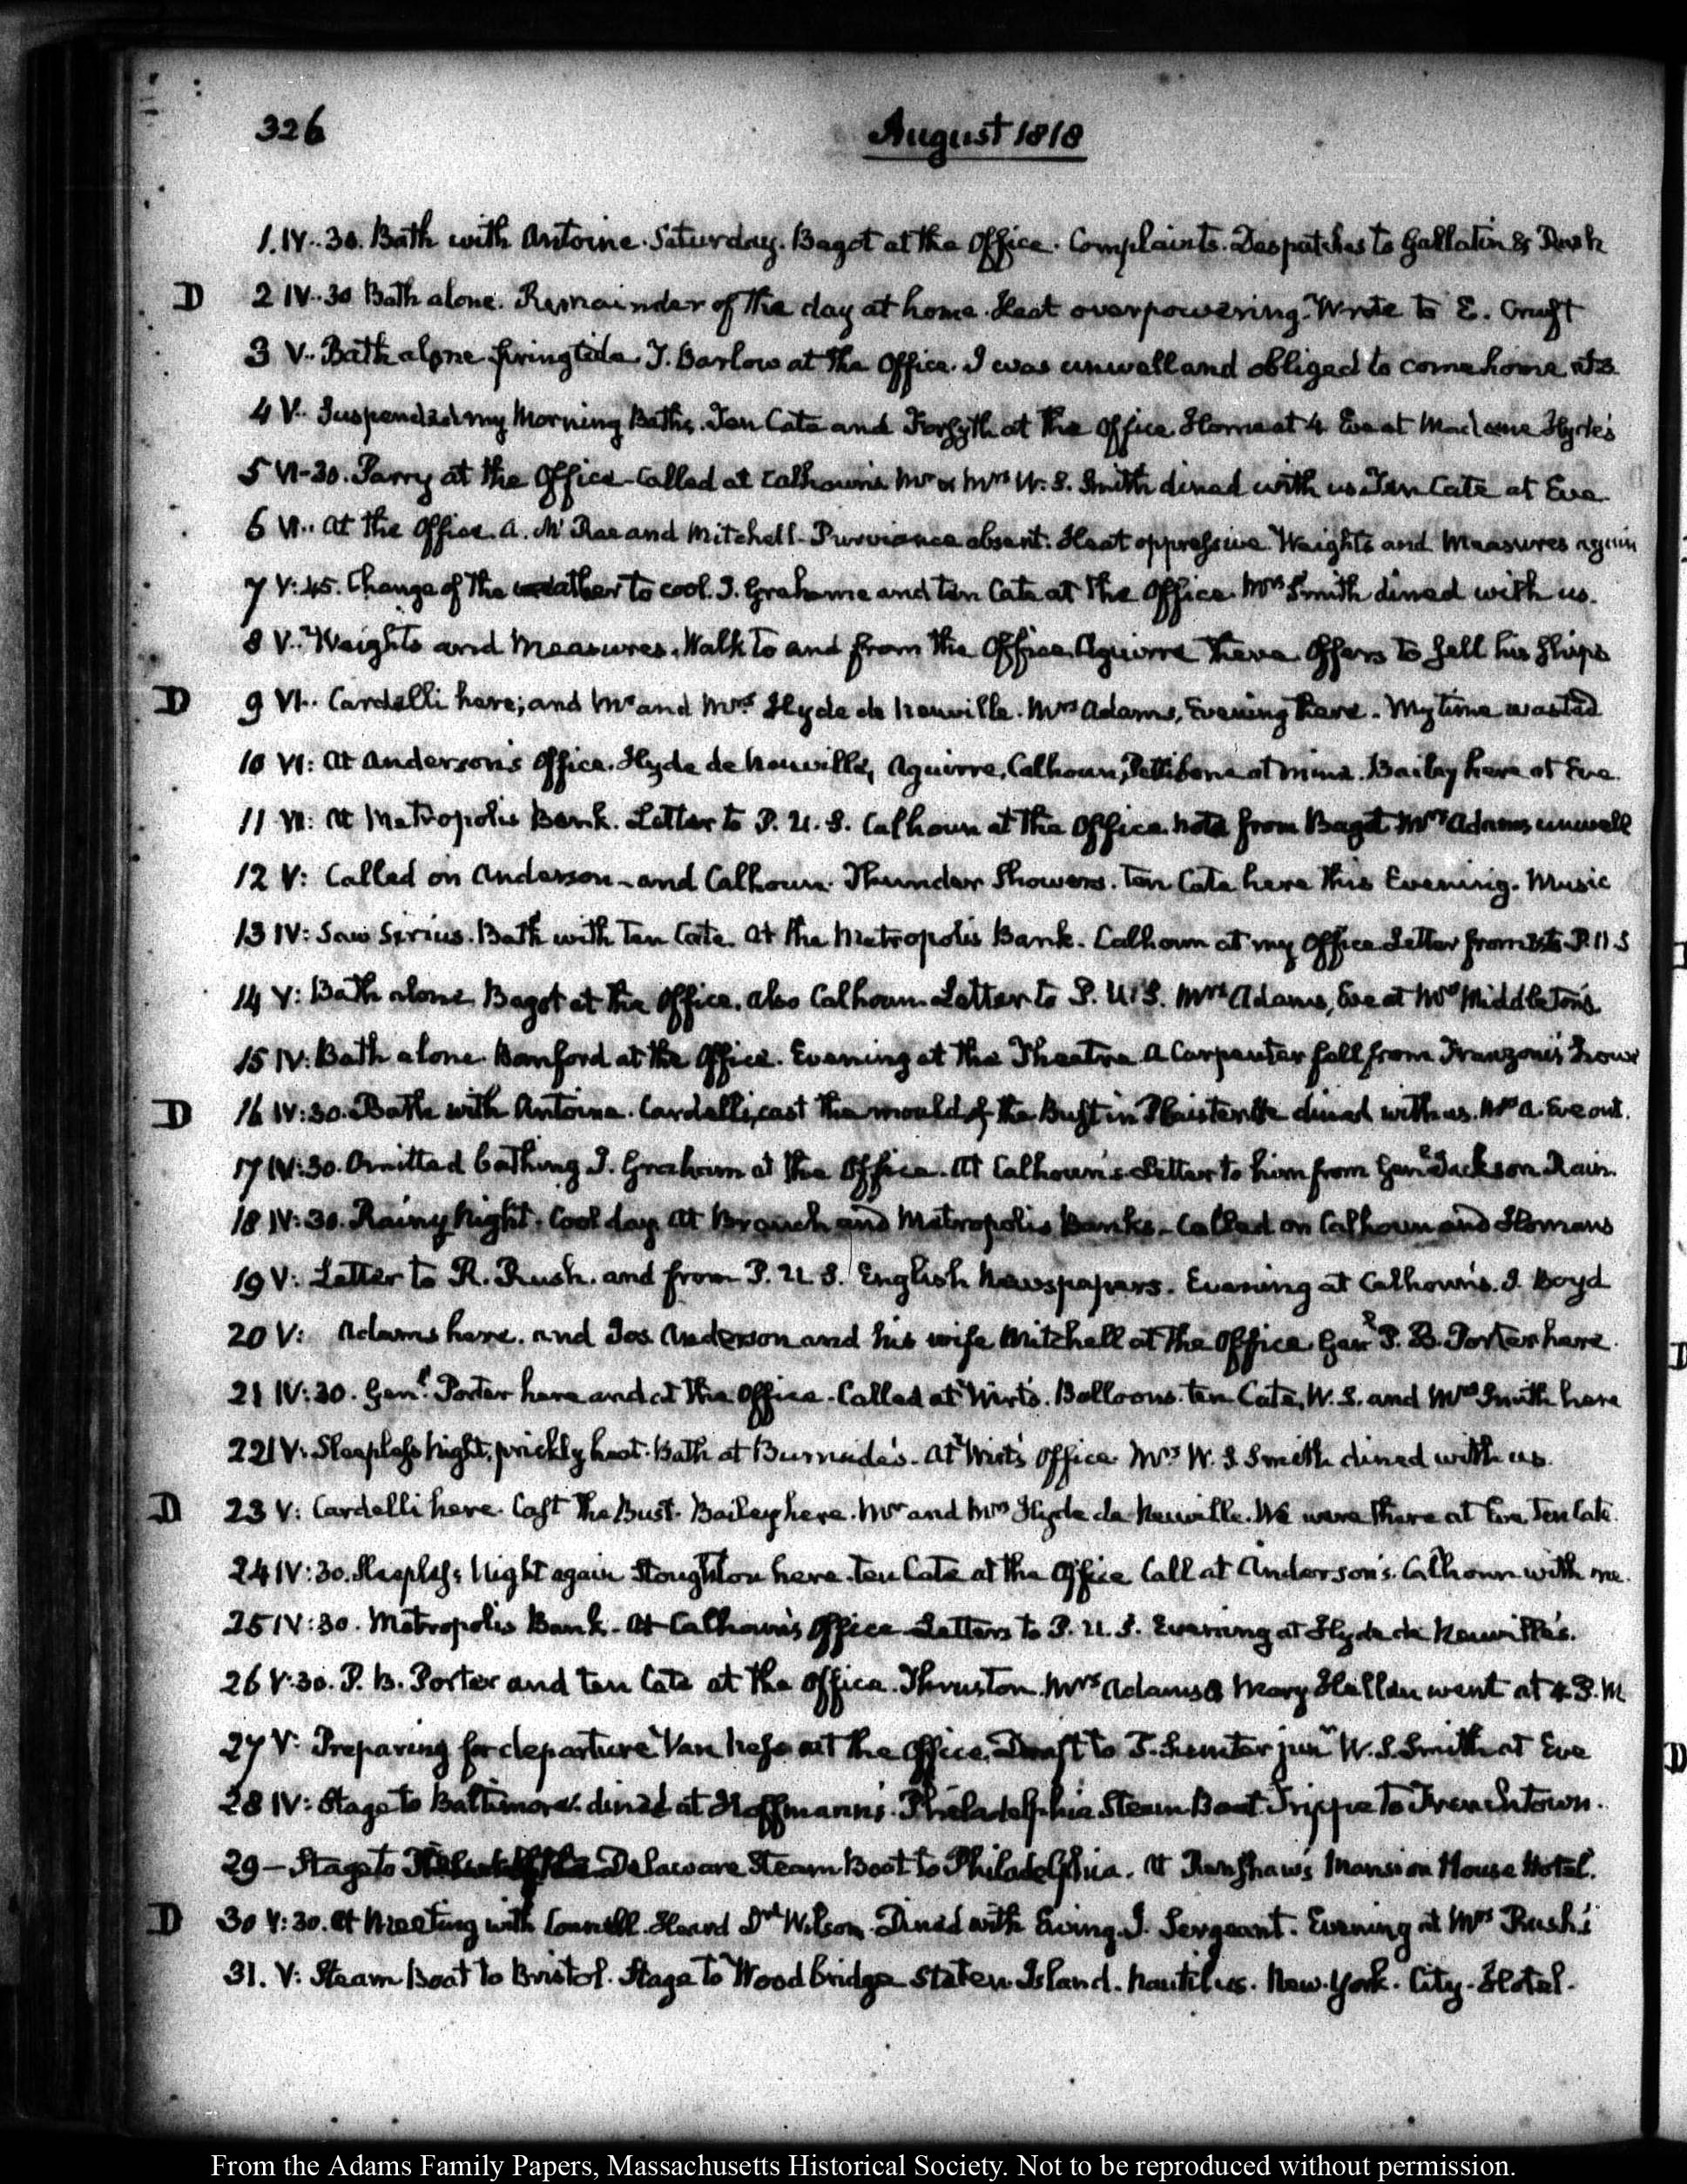 326
August 1818
1. IV..30. Bath with Antoine. Saturday. Bagot at the Office. Complaints. Despatches to Gallatin & Rush
D 2 IV..30 Bath alone. Remainder of the day at home. Heat overpowering. Write to E. Cruft
3 V.. Bath alone springtide J. Barlow at the Office. I was unwell and obliged to come home at 3.
4 V.. Suspended my Morning Baths. Ten Cate and Forsyth at the Office Home at 4 Eve at Madame Hyde's
5 VI-30. Parry at the Office- Called at Calhoun's Mr. & Mrs W. S. Smith dined with us Ten Cate at Eve
6 VI.. at the Office. A. McRae and Mitchell- Purviance absent. Heat oppressive. Weights and Measures again
7 V:45. Change of the weather to cool. J. Grahame and ten Cate at the Office. Mrs Smith dined with us.
8 V.. Weights and Measures. Walk to and from the Office. Aguirre there. Offers to sell his ships
D 9 VI.. Cardelli here; and Mr and Mrs Hyde de Neuville. Mrs Adams, Evening there. My time wasted
10 VI: At Anderson's Office. Hyde de Neuville, Aguirre, Calhoun, Pettibone at mine. Bailey here at Eve.
11 VI: At Metropolis Bank. Letter to P. U. S. Calhoun at the Office note from Bagot Mrs Adams unwell
12 V: Called on Anderson- and Calhoun. Thunder Showers. Ten Cate here this Evening. Music
13 IV: Saw Sirius. Bath with Ten Cate. At the Metropolis Bank. Calhoun at my Office Letter from & to P.U.S
14 V: Bath alone Bagot at the Office, also Calhoun. Letter to P. U. S. Mrs Adams, Eve at Mrs Middleton's
15 IV: Bath alone. Bomford at the Office. Evening at the Theatre. A Carpenter fall from Franzoni's house
D 16 IV:30. Bath with Antoine. Cardelli, cast the mould of the Bust in Plaister dined with us. Mrs A. Eve out.
17 IV:30. Omitted bathing J. Graham at the Office. At Calhoun's Letter to him from Genl Jackson Rain.
18 IV:30. Rainy Night. Cool day. At Branch and Metropolis Banks. Called on Calhoun and Homans
19 V: Letter to R. Rush. and from P. U. S. English Newspapers. Evening at Calhoun's. J. Boyd
20 V: Adams here. and Jos. Anderson and his wife Mitchell at the Office Genl P. B. Porter here.
21 IV:30. Genl. Porter here and at the Office. Called at Wirt's. Balloons. ten Cate, W. S. and Mrs Smith here
22 IV: Sleepless Night, prickly heat. Bath at Burnside's. At Wirt's Office. Mrs W. S Smith dined with us.
D 23 V: Cardelli here. Cast the Bust. Bailey here. Mr and Mrs Hyde de Neuville. We were there at Eve. Ten Cate.
24 IV:30. Sleepless Night again Stoughton here. ten Cate at the Office Call at Anderson's. Calhoun with me.
25 IV:30. Metropolis Bank. At Calhoun's Office Letters to P. U. S. Evening at Hyde de Neuville's.
26 V:30. P. B. Porter and ten Cate at the Office. Thruston. Mrs Adams & Mary Hellen went at 4 P.M
27 V: Preparing for departure Van Ness at the Office. Draft to T. Sumter junr W. S. Smith at Eve
28 IV: Stage to Baltimore. dined at Hoffmann's. Philadelphia Steam Boat Trippe to Frenchtown.
29 – Stage to Delaware Steam Boat to Philadelphia. At Renshaw's Mansion House Hotel.
D 30 V:30. At Meeting with Connell. Heard Dr Wilson. Dined with Ewing. J. Sergeant. Evening at Mrs Rush's
31. V: Steam Boat to Bristol. Stage to Woodbridge Staten Island. Nautilus. New-York. City-Hotel.
From the Adams Family Papers, Massachusetts Historical Society. Not to be reproduced without permission.